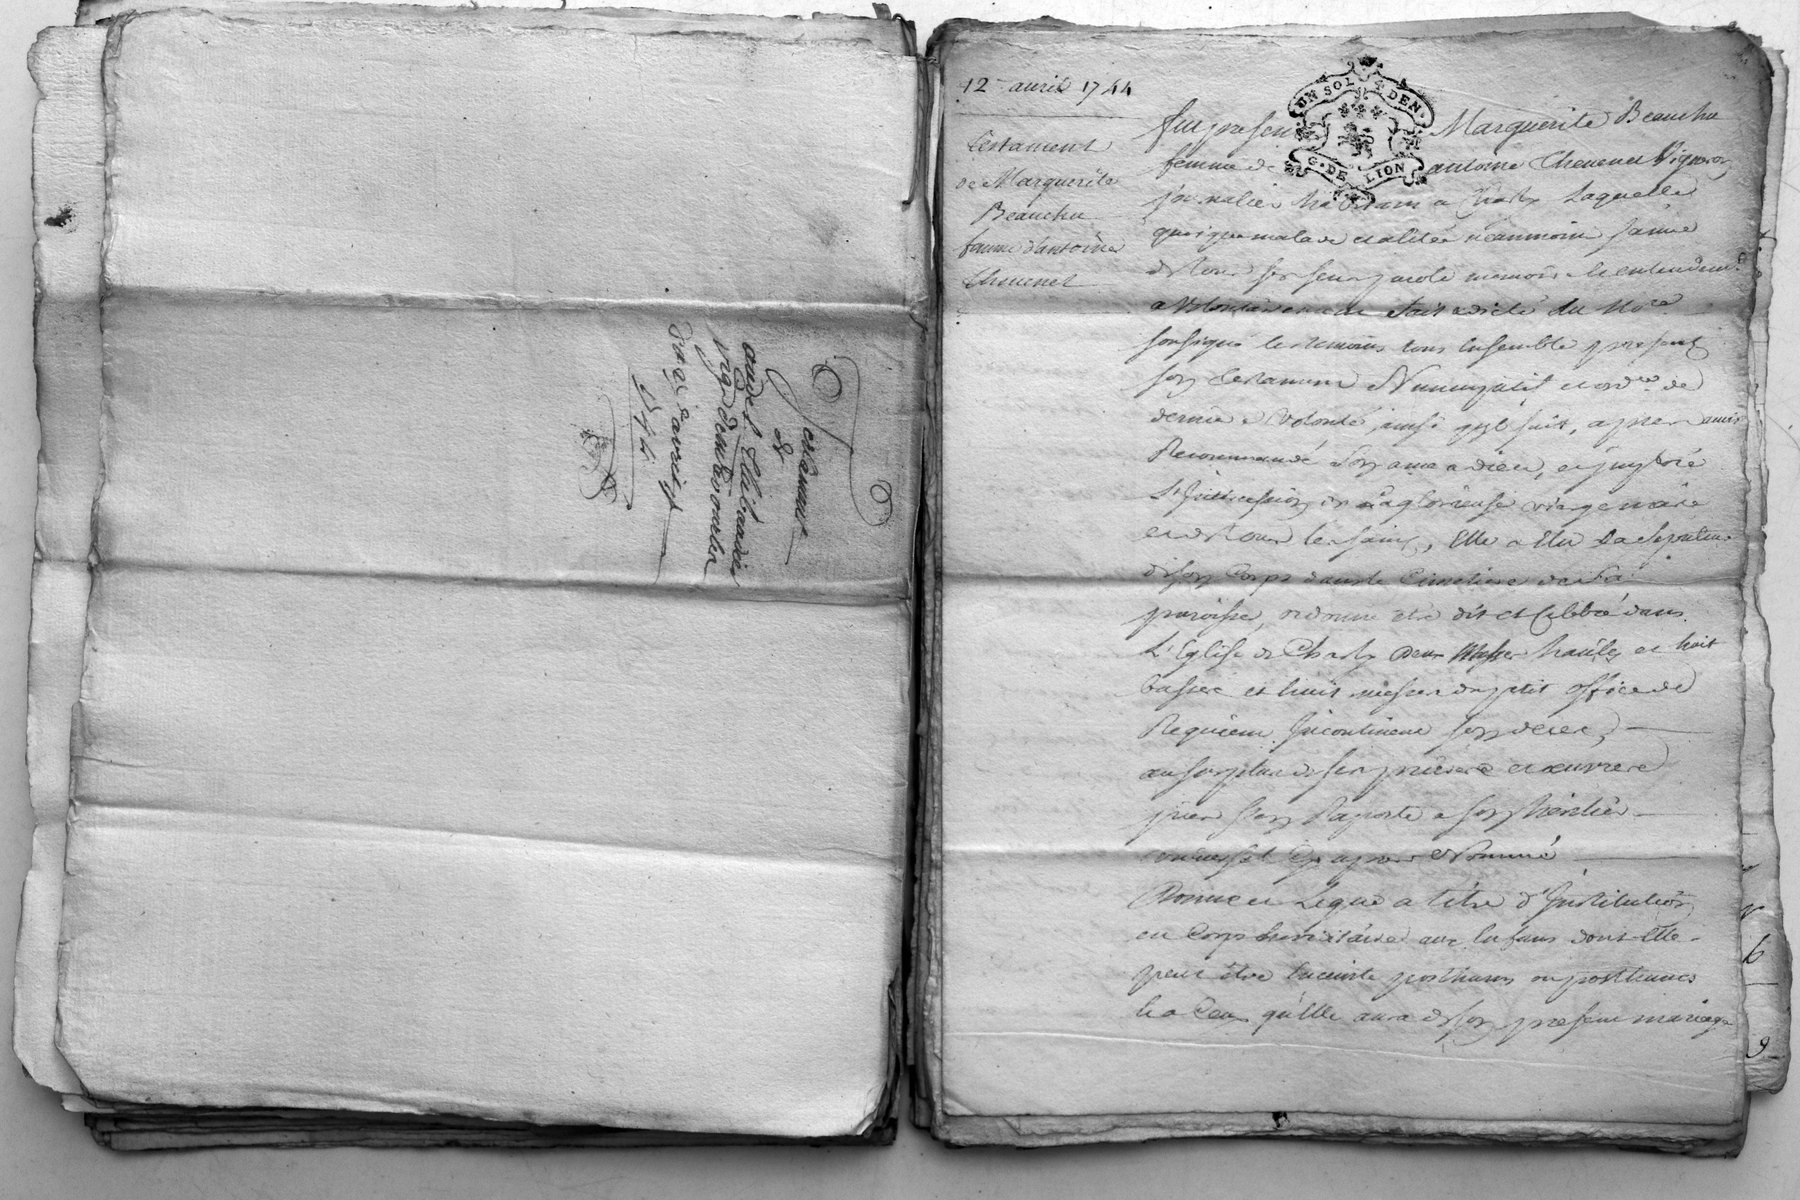 Testament
de
1744
12 avril 1744
Testament
de Marguerite
Beauchu
femme d'antoine
Chevenet
UN SOL 4 DEN.
G. DE LION
fut presente Marguerite Beauchu
femme de antoine Chevenet Vigneron
journalier habitant a Charly Laquelle
quoique malade et alitée neanmoins saine
de tous ses sens parole memoire et entendemt
a volontairement fait et dicté au Nore
soussigné les temoins tous ensemble presents
son testament Nuncupatif et ordce de
derniere volonté ainsi qu'il suit, apres avoir
Recommandé son ame a dieu, et imploré
L'Intercession de la glorieuse vierge marie
et de tous les saints, Elle a Elu La sepulture
de son Corps dans le Cimetiere de sa
paroisse, ordonne etre dit et Celebré dans
L'Eglise de Charly deux Messes hautes et huit
basses et huit messes du petit office de
Requiem Incontinent son deces,
au surplus de ses prieres et oeuvres
pies s'en Raporte a son heritier
universel Cy apres Nommé
Donne et Legue a titre d'Institution
en Corps hereditaire aux Enfans dont Elle
peut être Enceinte posthumes ou posthumes
et a Ceux qu'Elle aura de son present mariage